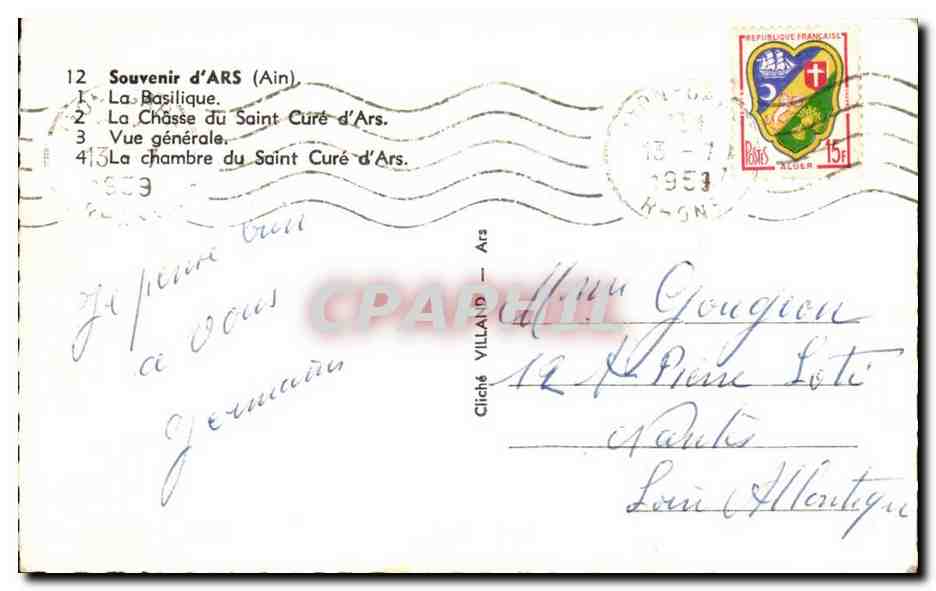 12 Souvenir d'ARS (Ain).
1 La Basilique.
2 La Châsse du Saint Curé d'Ars.
3 Vue générale.
4 La chambre du Saint Curé d'Ars.
13
1959
REPUBLIQUE FRANÇAISE
POSTES ALGER 15F
13 - 7
1959
RHONE
Je pense bien
a vous
Germaine
Cliché VILLAND — Ars
CPAPHIL
Mme Gougeon
12 Pierre Loti
Nantes
Loire Atlantique